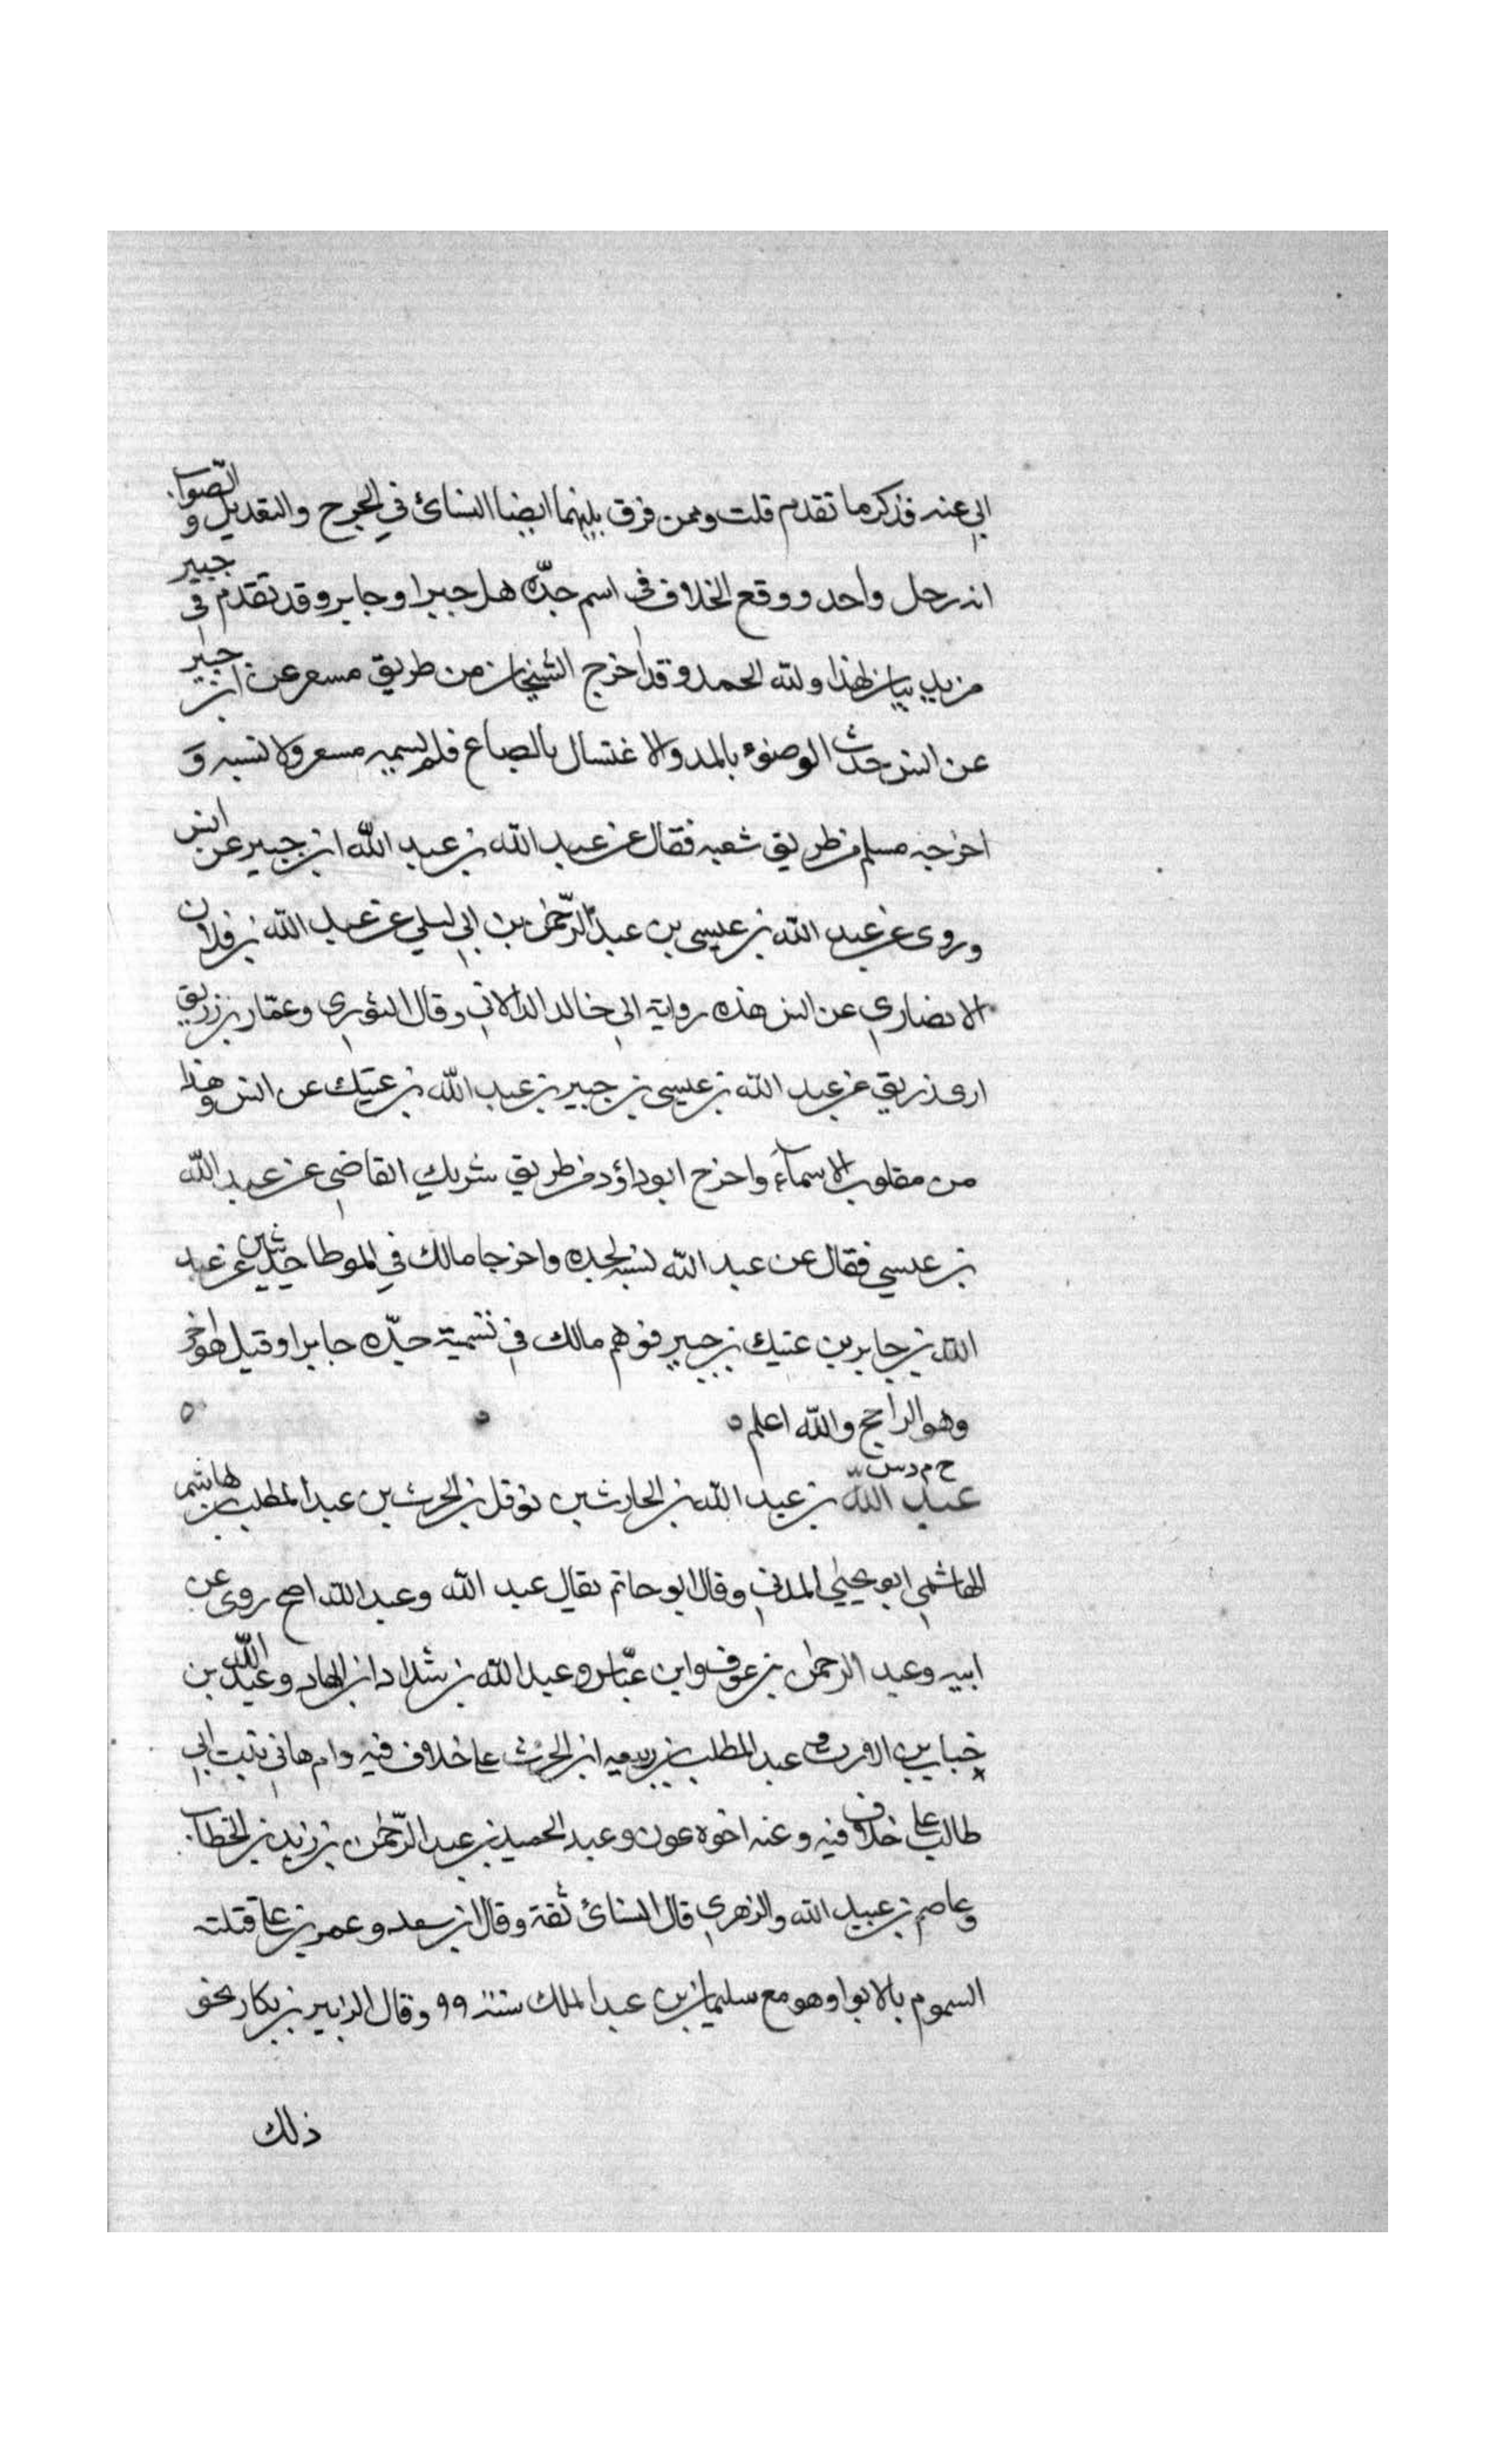 ابي عنه فذكر ما تقدم قلت وممن فرق بينهما ايضا النسائ في الجرح والتعديل والصواب
انه رجل واحد ووقع الخلاف في اسم جدّه هل جبرا وجابر وقد تقدم في جبير
مزيد بيان لهذا ولله الحمد وقد اخرج الشيخان من طريق مسعر عن ابن جبر
عن انس حديث الوضوء بالمد والاغتسال بالصاع فلم يسميه مسعر ولا نسبه و
اخرجه مسلم من طريق شعبه فقال عن عبد الله بن عبد الله ابن جبير عن انس
وروى عن عبد الله بن عيسى بن عبد الرّحمن بن ابي ليلي عن عبد الله بن فلان
الانصاري عن انس هذه رواية ابي خالد الدالاني وقال الثوري وعمّار بن زريق
زريق عن عبد الله بن عيسى بن جبير بن عبد الله بن عتيك عن انس وهذا
من مقلوب الاسماء واخرج ابو داؤد من طريق شريك القاضي عن عبد الله
بن عيسي فقال عن عبد الله نسبه لجده واخرجا مالك في الموطا حديثين عن عبد
الله بن جابر بن عتيك بن جبير فوهم مالك في تسمية جدّه جابرا وقيل هو اخر
وهو الراجح والله اعلم ه
خ م د س
عبد الله بن عبد الله بن الحارث بن نوفل بن الحرث بن عبد المطلب بن هاشم
الهاشمي ابو يحيي المدني وقال ابو حاتم يقال عبد الله وعبد الله اصح روى عن
ابيه وعبد الرحمن بن عوف وابن عبّاس وعبد الله بن شداد ابن الهاد وعبد الله بن
خباب بن الارت وعبد المطلب بن ربيعه ابن الحرث عا خلاف فيه وام هاني بنت ابي
طالب عا خلاف فيه وعنه اخوه عون وعبد الحميد بن عبد الرّحمن بن زيد بن الخطاب
وعاصم بن عبيد الله والزهري قال النسائ ثقة وقال ابن سعد وعمر بن عا قتلته
السموم بالابوا وهو مع سليمان بن عبد الملك سنة ٩٩ وقال الزبير بن بكار نحو
ذلك